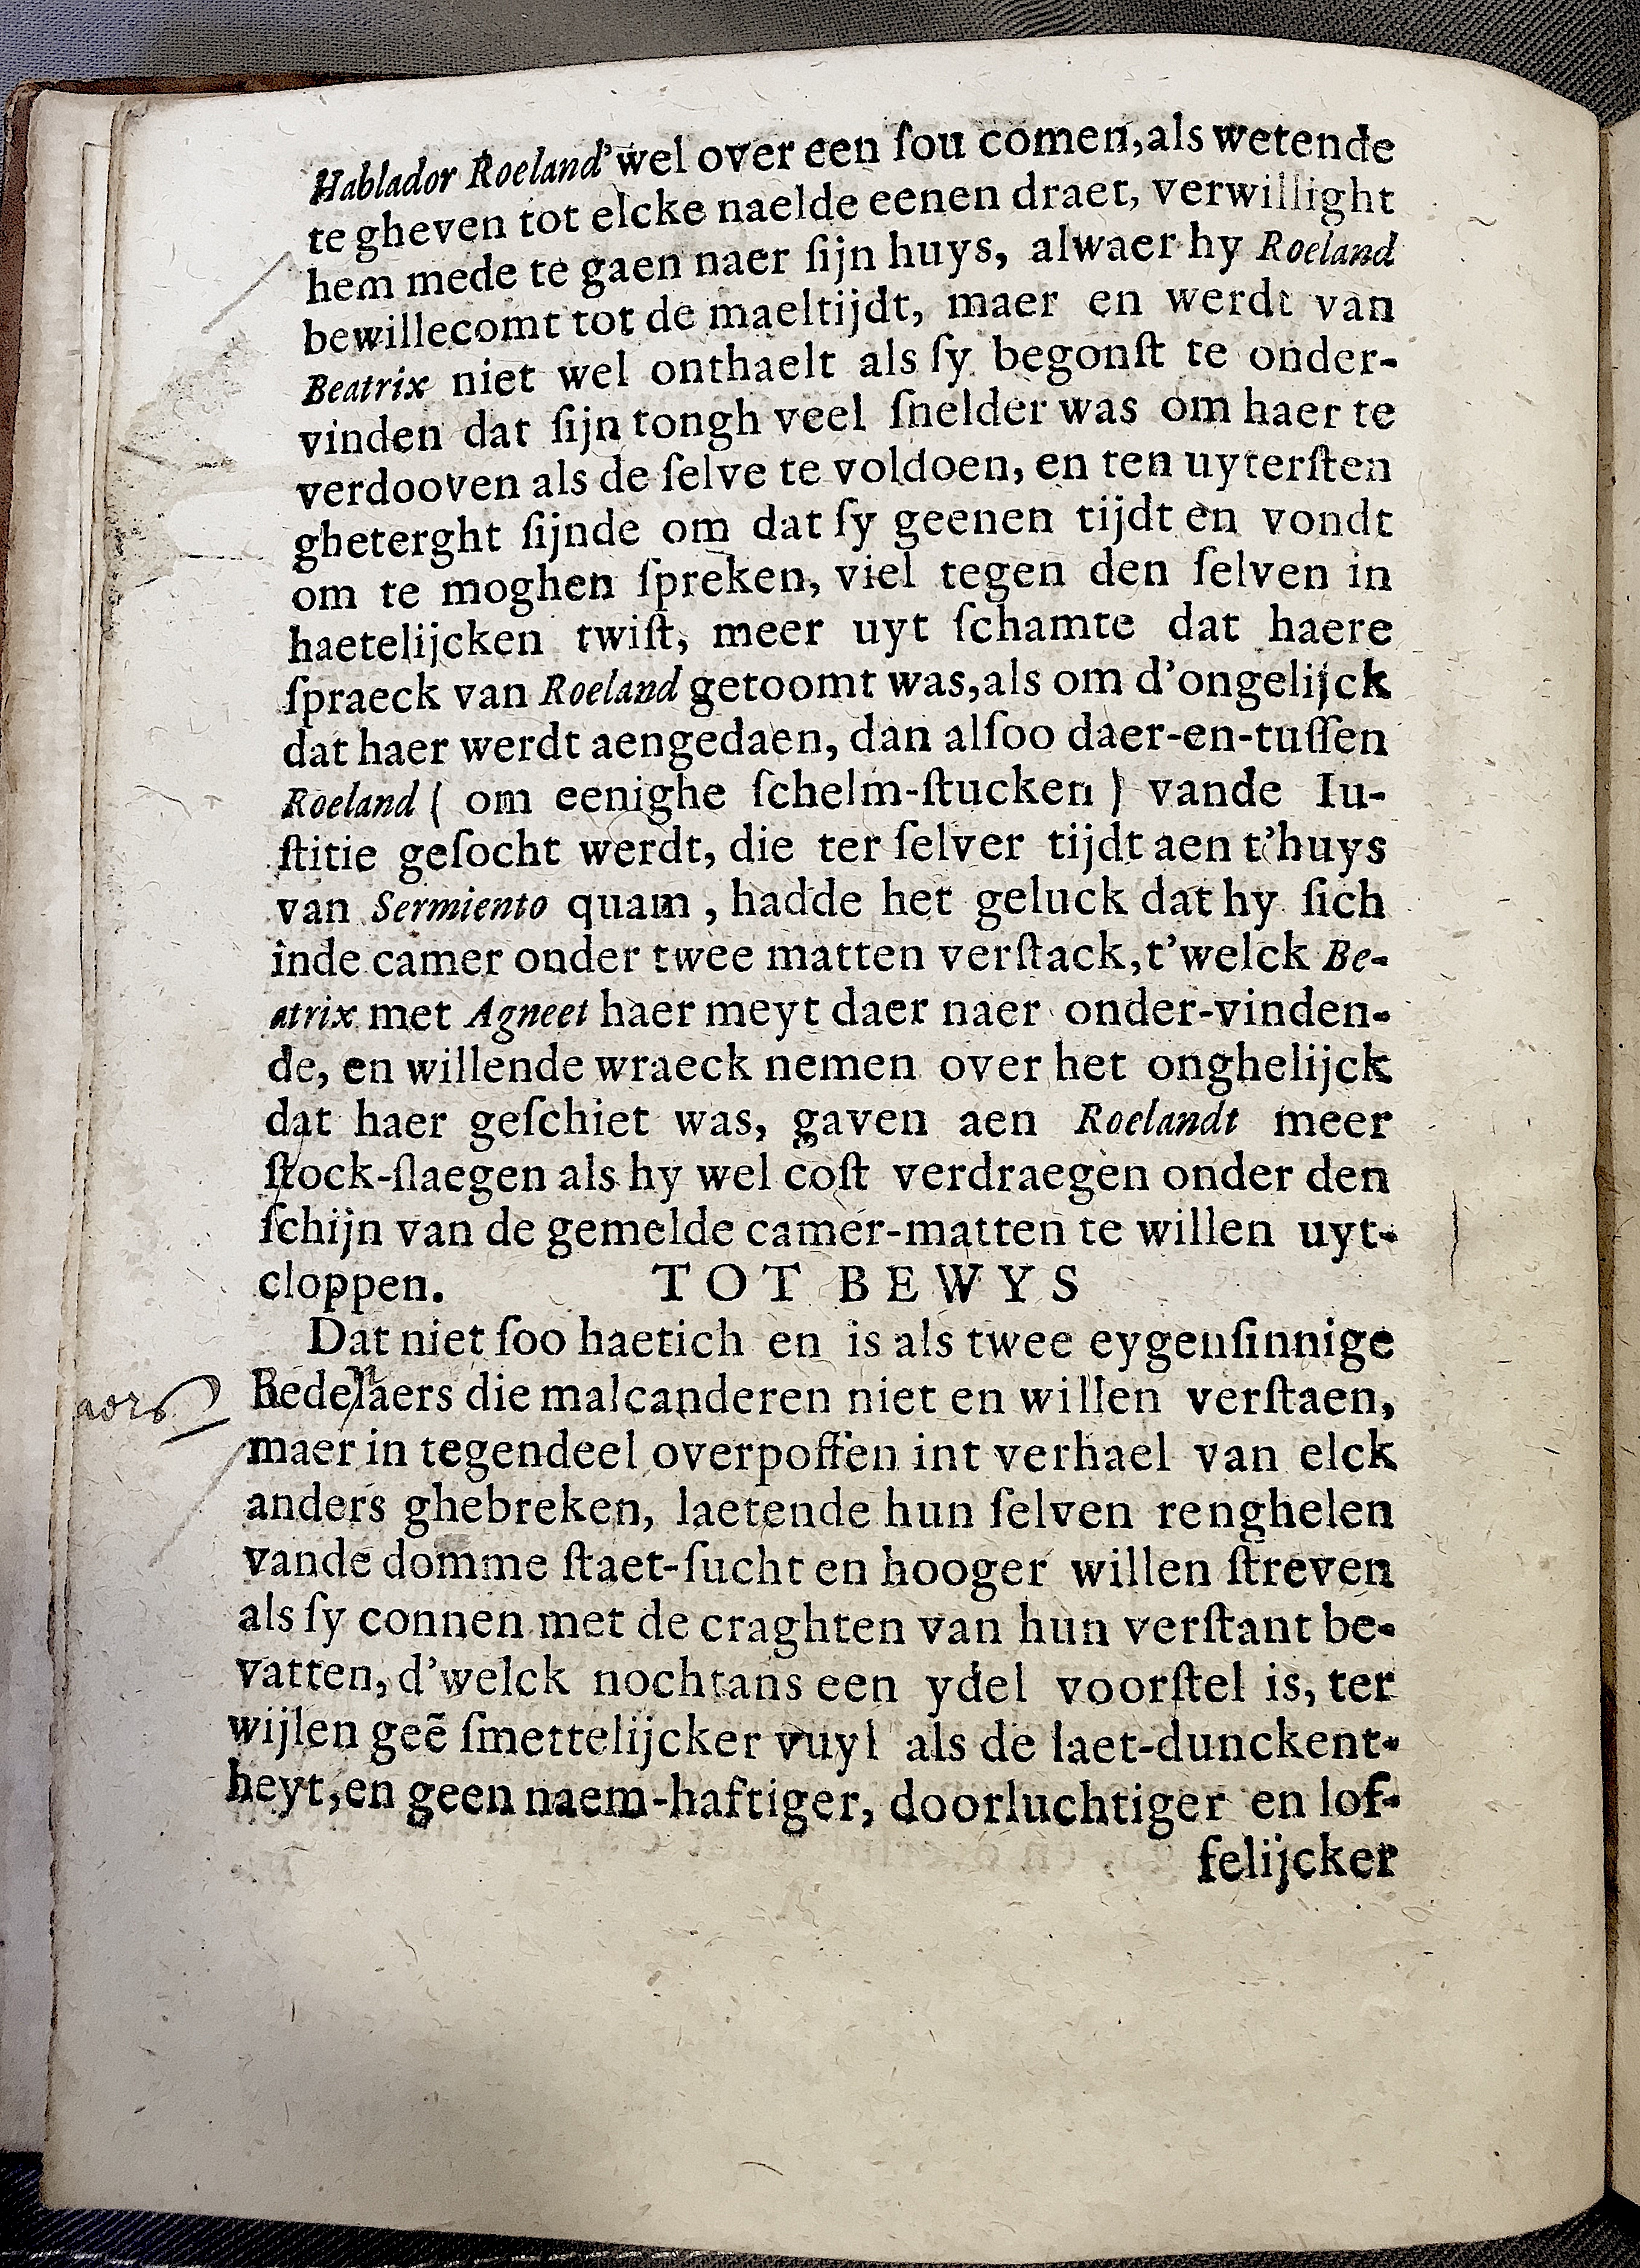 Hablador Roeland wel over een ſou comen, als wetende
te gheven tot elcke naelde eenen draet, verwillight
hem mede te gaen naer ſijn huys, alwaer hy Roeland
bewillecomt tot de maeltijdt, maer en werdt van
Beatrix niet wel onthaelt als ſy begonſt te onder-
vinden dat ſijn tongh veel ſnelder was om haer te
verdooven als de ſelve te voldoen, en ten uyterſten
gheterght ſijnde om dat ſy geenen tijdt en vondt
om te moghen ſpreken, viel tegen den ſelven in
haetelijcken twiſt, meer uyt ſchamte dat haere
ſpraeck van Roeland getoomt was, als om d'ongelijck
dat haer werdt aengedaen, dan alſoo daer-en-tuſſen
Roeland ( om eenighe ſchelm-ſtucken ) vande Iu-
ſtitie geſocht werdt, die ter ſelver tijdt aen t'huys
van Sermiento quam, hadde het geluck dat hy ſich
inde camer onder twee matten verſtack, t'welck Be-
atrix met Agneet haer meyt daer naer onder-vinden-
de, en willende wraeck nemen over het onghelijck
dat haer geſchiet was, gaven aen Roelandt meer
ſtock-ſlaegen als hy wel coſt verdraegen onder den
ſchijn van de gemelde camer-matten te willen uyt-
cloppen. TOT BEWYS
Dat niet ſoo haetich en is als twee eygenſinnige
Bedelaers die malcanderen niet en willen verſtaen,
maer in tegendeel overpoffen int verhael van elck
anders ghebreken, laetende hun ſelven renghelen
vande domme ſtaet-ſucht en hooger willen ſtreven
als ſy connen met de craghten van hun verſtant be-
vatten, d'welck nochtans een ydel voorſtel is, ter
wijlen geẽ ſmettelijcker vuyl als de laet-dunckent-
heyt, en geen naem-haftiger, doorluchtiger en lof-
felijcker